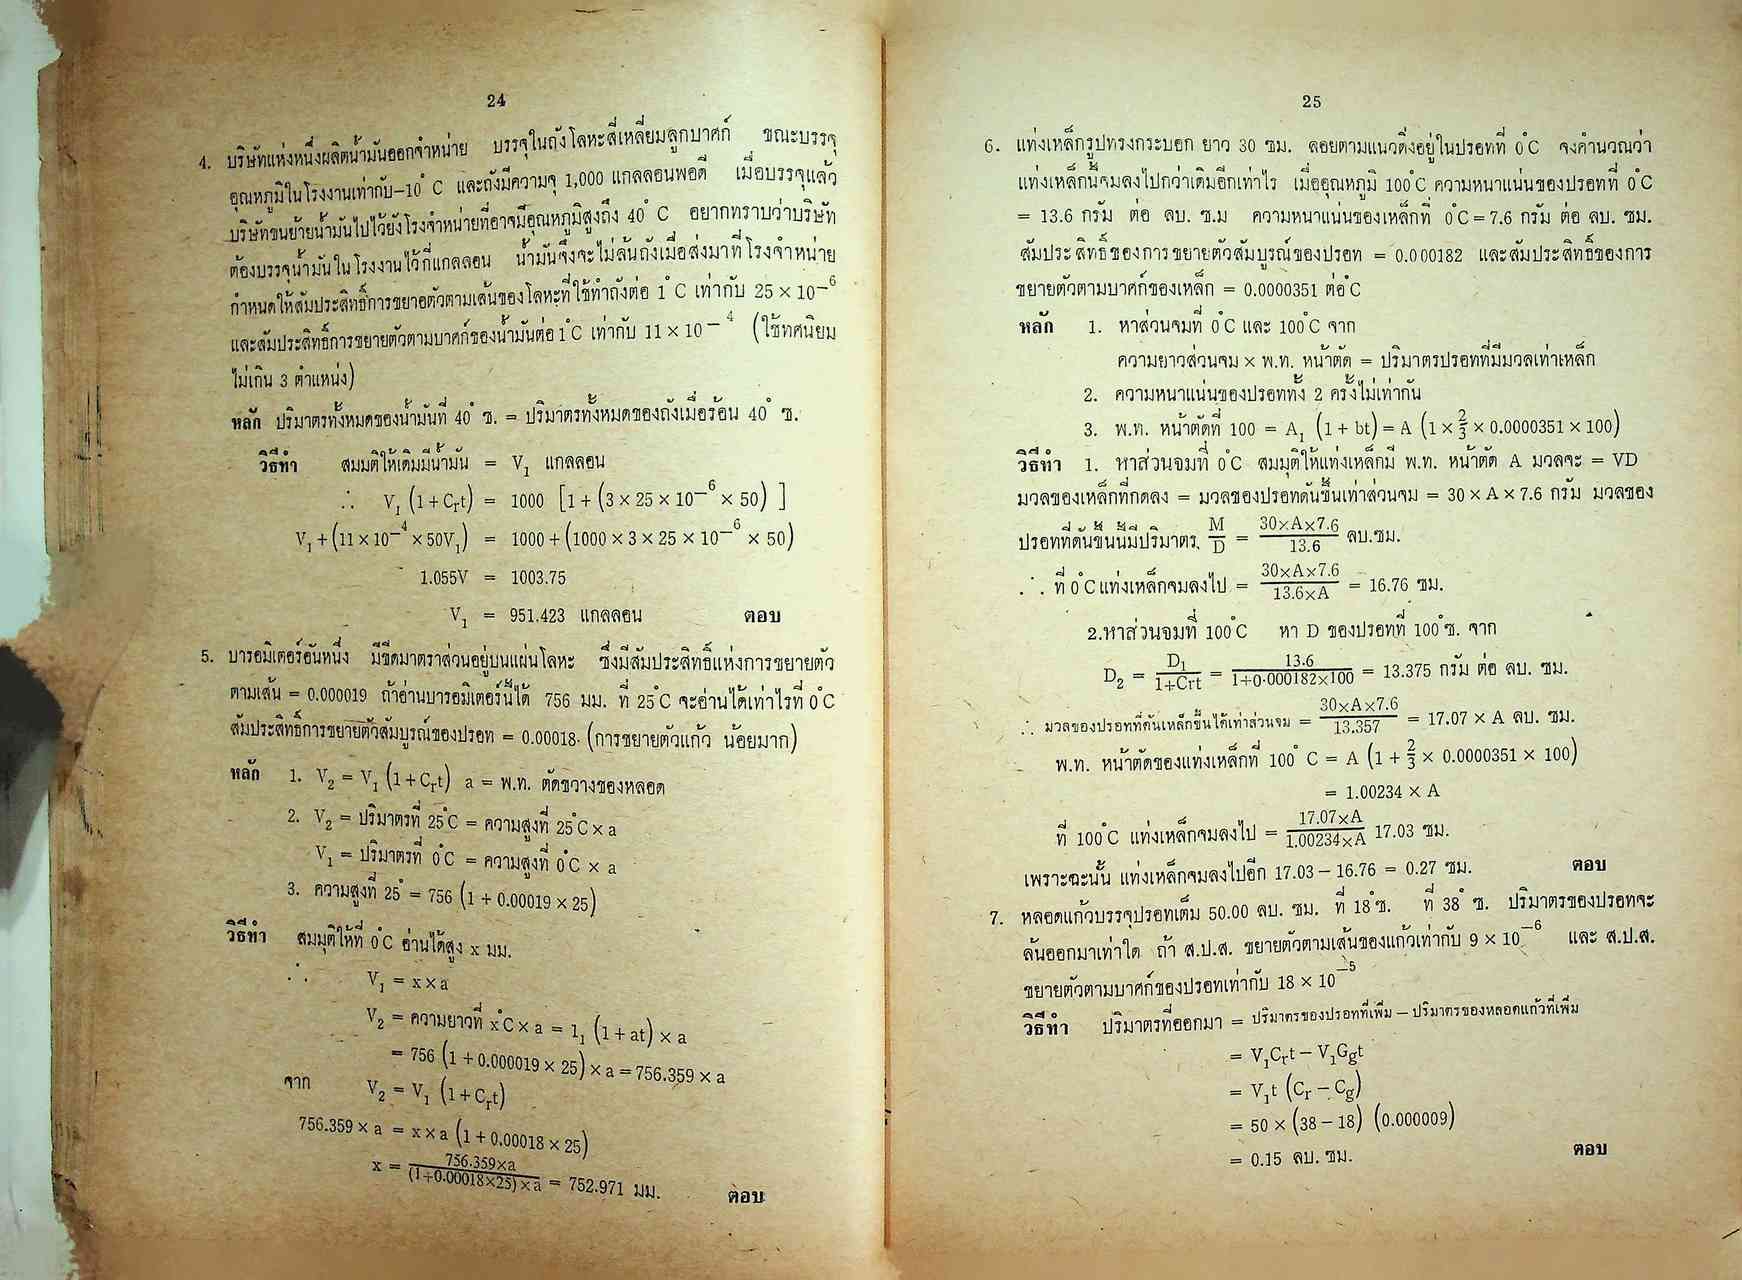 24
4. บริษัทแห่งหนึ่งผลิตน้ำมันออกจำหน่าย บรรจุในถังโลหะสี่เหลี่ยมลูกบาศก์ ขณะบรรจุ
อุณหภูมิในโรงงานเท่ากับ–10°C และถังมีความจุ 1,000 แกลลอนพอดี เมื่อบรรจุแล้ว
บริษัทขนย้ายน้ำมันไปไว้ยังโรงจำหน่ายที่อาจมีอุณหภูมิสูงถึง 40°C อยากทราบว่าบริษัท
ต้องบรรจุน้ำมันในโรงงานไว้กี่แกลลอน น้ำมันจึงจะไม่ล้นถังเมื่อส่งมาที่โรงจำหน่าย
กำหนดให้สัมประสิทธิ์การขยายตัวตามเส้นของโลหะที่ใช้ทำถังต่อ 1°C เท่ากับ 25 × 10⁻⁶
และสัมประสิทธิ์การขยายตัวตามบาศก์ของน้ำมันต่อ 1°C เท่ากับ 11 × 10⁻⁴ (ใช้ทศนิยม
ไม่เกิน 3 ตำแหน่ง)
หลัก ปริมาตรทั้งหมดของน้ำมันที่ 40° ซ. = ปริมาตรทั้งหมดของถังเมื่อร้อน 40° ซ.
วิธีทำ สมมติให้เดิมมีน้ำมัน = V₁ แกลลอน
∴ V₁ (1 + Crt) = 1000 [1 + (3 × 25 × 10⁻⁶ × 50) ]
V₁ + (11 × 10⁻⁴ × 50V₁) = 1000 + (1000 × 3 × 25 × 10⁻⁶ × 50)
1.055V = 1003.75
V₁ = 951.423 แกลลอน ตอบ
5. บารอมิเตอร์อันหนึ่ง มีขีดมาตราส่วนอยู่บนแผ่นโลหะ ซึ่งมีสัมประสิทธิ์แห่งการขยายตัว
ตามเส้น = 0.000019 ถ้าอ่านบารอมิเตอร์นี้ได้ 756 มม. ที่ 25°C จะอ่านได้เท่าไรที่ 0°C
สัมประสิทธิ์การขยายตัวสัมบูรณ์ของปรอท = 0.00018 (การขยายตัวแก้ว น้อยมาก)
หลัก 1. V₂ = V₁ (1 + Crt) a = พ.ท. ตัดขวางของหลอด
2. V₂ = ปริมาตรที่ 25°C = ความสูงที่ 25°C × a
V₁ = ปริมาตรที่ 0°C = ความสูงที่ 0°C × a
3. ความสูงที่ 25° = 756 (1 + 0.00019 × 25)
วิธีทำ สมมุติให้ที่ 0°C อ่านได้สูง x มม.
∴ V₁ = x × a
V₂ = ความยาวที่ x°C × a = l₁ (1 + at) × a
= 756 (1 + 0.000019 × 25) × a = 756.359 × a
จาก V₂ = V₁ (1 + Crt)
756.359 × a = x × a (1 + 0.00018 × 25)
x = 756.359×a / (1+0.00018×25) × a = 752.971 มม. ตอบ
25
6. แท่งเหล็กรูปทรงกระบอก ยาว 30 ซม. ลอยตามแนวดิ่งอยู่ในปรอทที่ 0°C จงคำนวณว่า
แท่งเหล็กนี้จมลงไปกว่าเดิมอีกเท่าไร เมื่ออุณหภูมิ 100°C ความหนาแน่นของปรอทที่ 0°C
= 13.6 กรัม ต่อ ลบ. ซ.ม ความหนาแน่นของเหล็กที่ 0°C = 7.6 กรัม ต่อ ลบ. ซม.
สัมประสิทธิ์ของการขยายตัวสัมบูรณ์ของปรอท = 0.000182 และสัมประสิทธิ์ของการ
ขยายตัวตามบาศก์ของเหล็ก = 0.0000351 ต่อ°C
หลัก 1. หาส่วนจมที่ 0°C และ 100°C จาก
ความยาวส่วนจม × พ.ท. หน้าตัด = ปริมาตรปรอทที่มีมวลเท่าเหล็ก
2. ความหนาแน่นของปรอททั้ง 2 ครั้งไม่เท่ากัน
3. พ.ท. หน้าตัดที่ 100 = A₁ (1 + bt) = A (1 × 2/3 × 0.0000351 × 100)
วิธีทำ 1. หาส่วนจมที่ 0°C สมมุติให้แท่งเหล็กมี พ.ท. หน้าตัด A มวลจะ = VD
มวลของเหล็กที่กดลง = มวลของปรอทดันขึ้นเท่าส่วนจม = 30 × A × 7.6 กรัม มวลของ
ปรอทที่ดันขึ้นนี้มีปริมาตร M/D = 30×A×7.6 / 13.6 ลบ.ซม.
∴ ที่ 0°C แท่งเหล็กจมลงไป = 30×A×7.6 / 13.6×A = 16.76 ซม.
2.หาส่วนจมที่ 100°C หา D ของปรอทที่ 100°ซ. จาก
D₂ = D₁ / 1+Crt = 13.6 / 1+0.000182×100 = 13.375 กรัม ต่อ ลบ. ซม.
∴ มวลของปรอทที่ดันเหล็กขึ้นได้เท่าส่วนจม = 30×A×7.6 / 13.357 = 17.07 × A ลบ. ซม.
พ.ท. หน้าตัดของแท่งเหล็กที่ 100°C = A (1 + 2/3 × 0.0000351 × 100)
= 1.00234 × A
ที่ 100°C แท่งเหล็กจมลงไป = 17.07×A / 1.00234×A 17.03 ซม.
เพราะฉะนั้น แท่งเหล็กจมลงไปอีก 17.03 – 16.76 = 0.27 ซม. ตอบ
7. หลอดแก้วบรรจุปรอทเต็ม 50.00 ลบ. ซม. ที่ 18°ซ. ที่ 38°ซ. ปริมาตรของปรอทจะ
ล้นออกมาเท่าใด ถ้า ส.ป.ส. ขยายตัวตามเส้นของแก้วเท่ากับ 9 × 10⁻⁶ และ ส.ป.ส.
ขยายตัวตามบาศก์ของปรอทเท่ากับ 18 × 10⁻⁵
วิธีทำ ปริมาตรที่ออกมา = ปริมาตรของปรอทที่เพิ่ม – ปริมาตรของหลอดแก้วที่เพิ่ม
= V₁Crt – V₁Ggt
= V₁t (Cr – Cg)
= 50 × (38 – 18) (0.000009)
= 0.15 ลบ. ซม. ตอบ